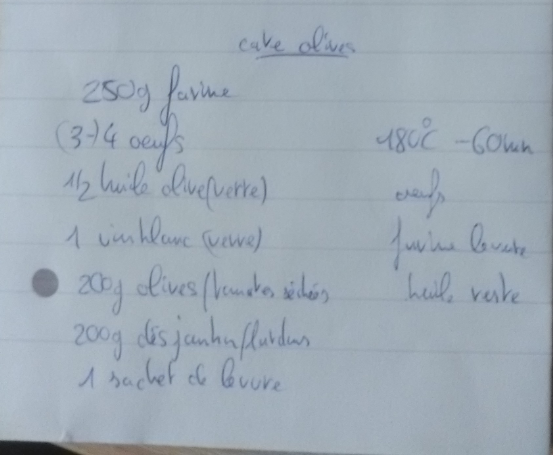 cake olives
250g farine
(3-)4 oeufs
1/2 huile olive (verre)
1 vin blanc (verre)
200g olives/tomates séchées
200g dés jambon/lardons
1 sachet de levure
180°C - 60min
oeufs
farine levure
huile reste